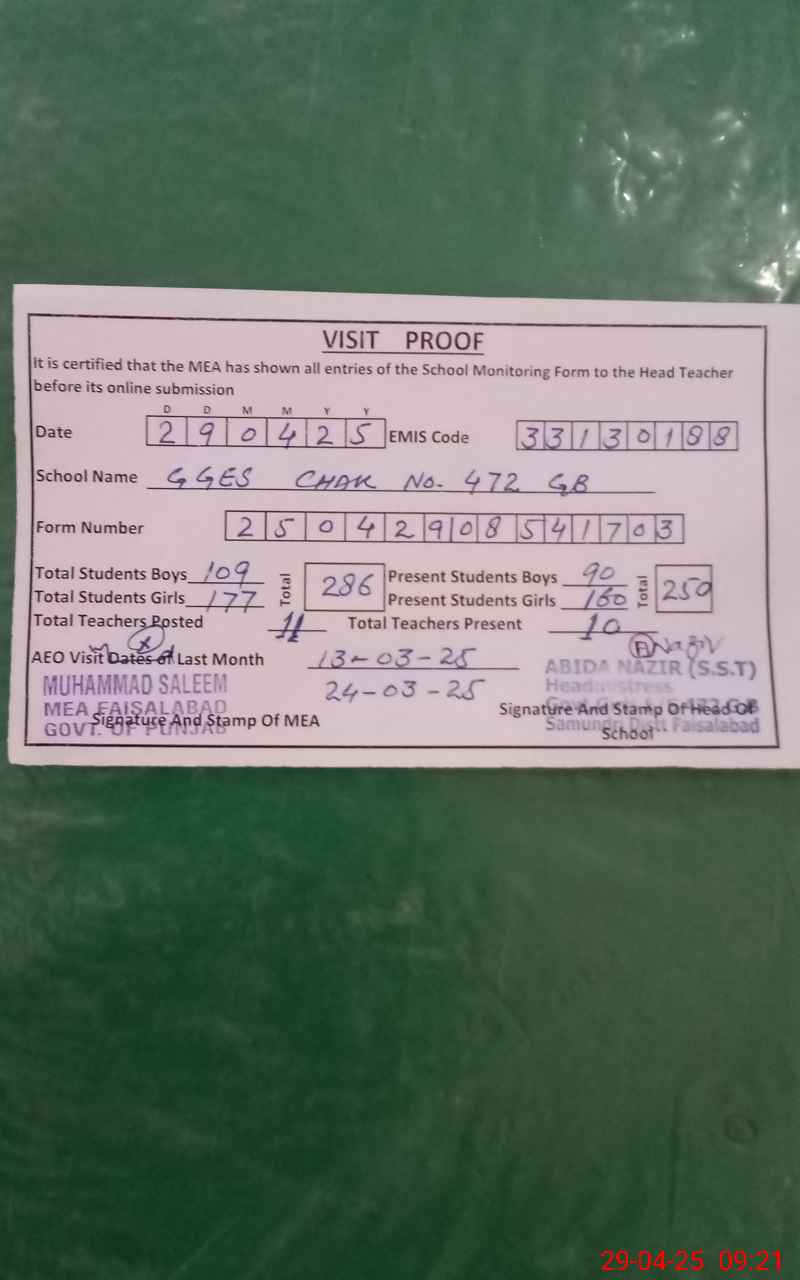 VISIT PROOF
It is certified that the MEA has shown all entries of the School Monitoring Form to the Head Teacher
before its online submission
D D M M Y Y
Date 290425 EMIS Code 33130188
School Name GGES CHAK No. 472 GB
Form Number 25042908541703
Total Students Boys 109 Total 286 Present Students Boys 90 Total 250
Total Students Girls 177 Present Students Girls 160
Total Teachers Posted 11 Total Teachers Present 10
AEO Visit Dates of Last Month 13-03-25
24-03-25
A Nazir
MUHAMMAD SALEEM
MEA FAISALABAD
GOVT. OF PUNJAB
Signature And Stamp Of MEA
ABIDA NAZIR (S.S.T)
Headmistress
Samundri Distt Faisalabad
Signature And Stamp Of Head Of
School
29-04-25 09:21